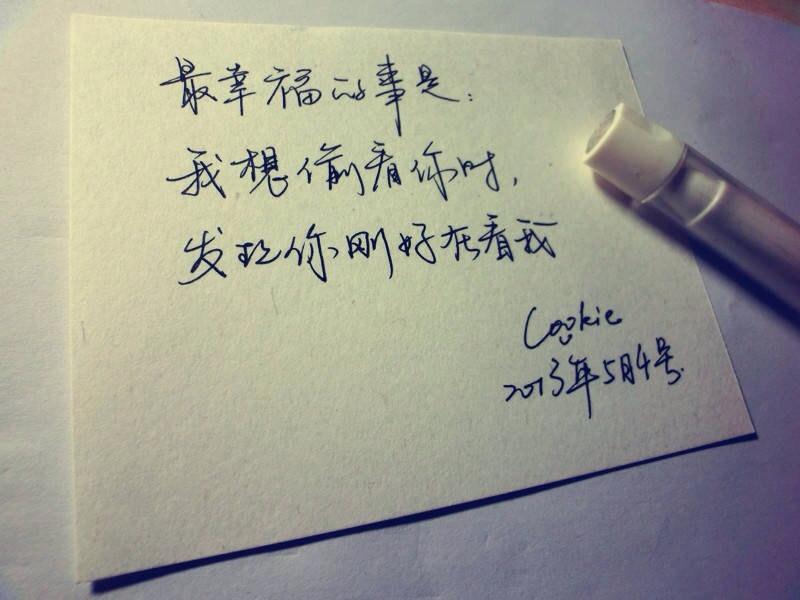 最幸福的事是:
我想偷看你时,
发现你刚好在看我
Cookie
2013年5月4号.